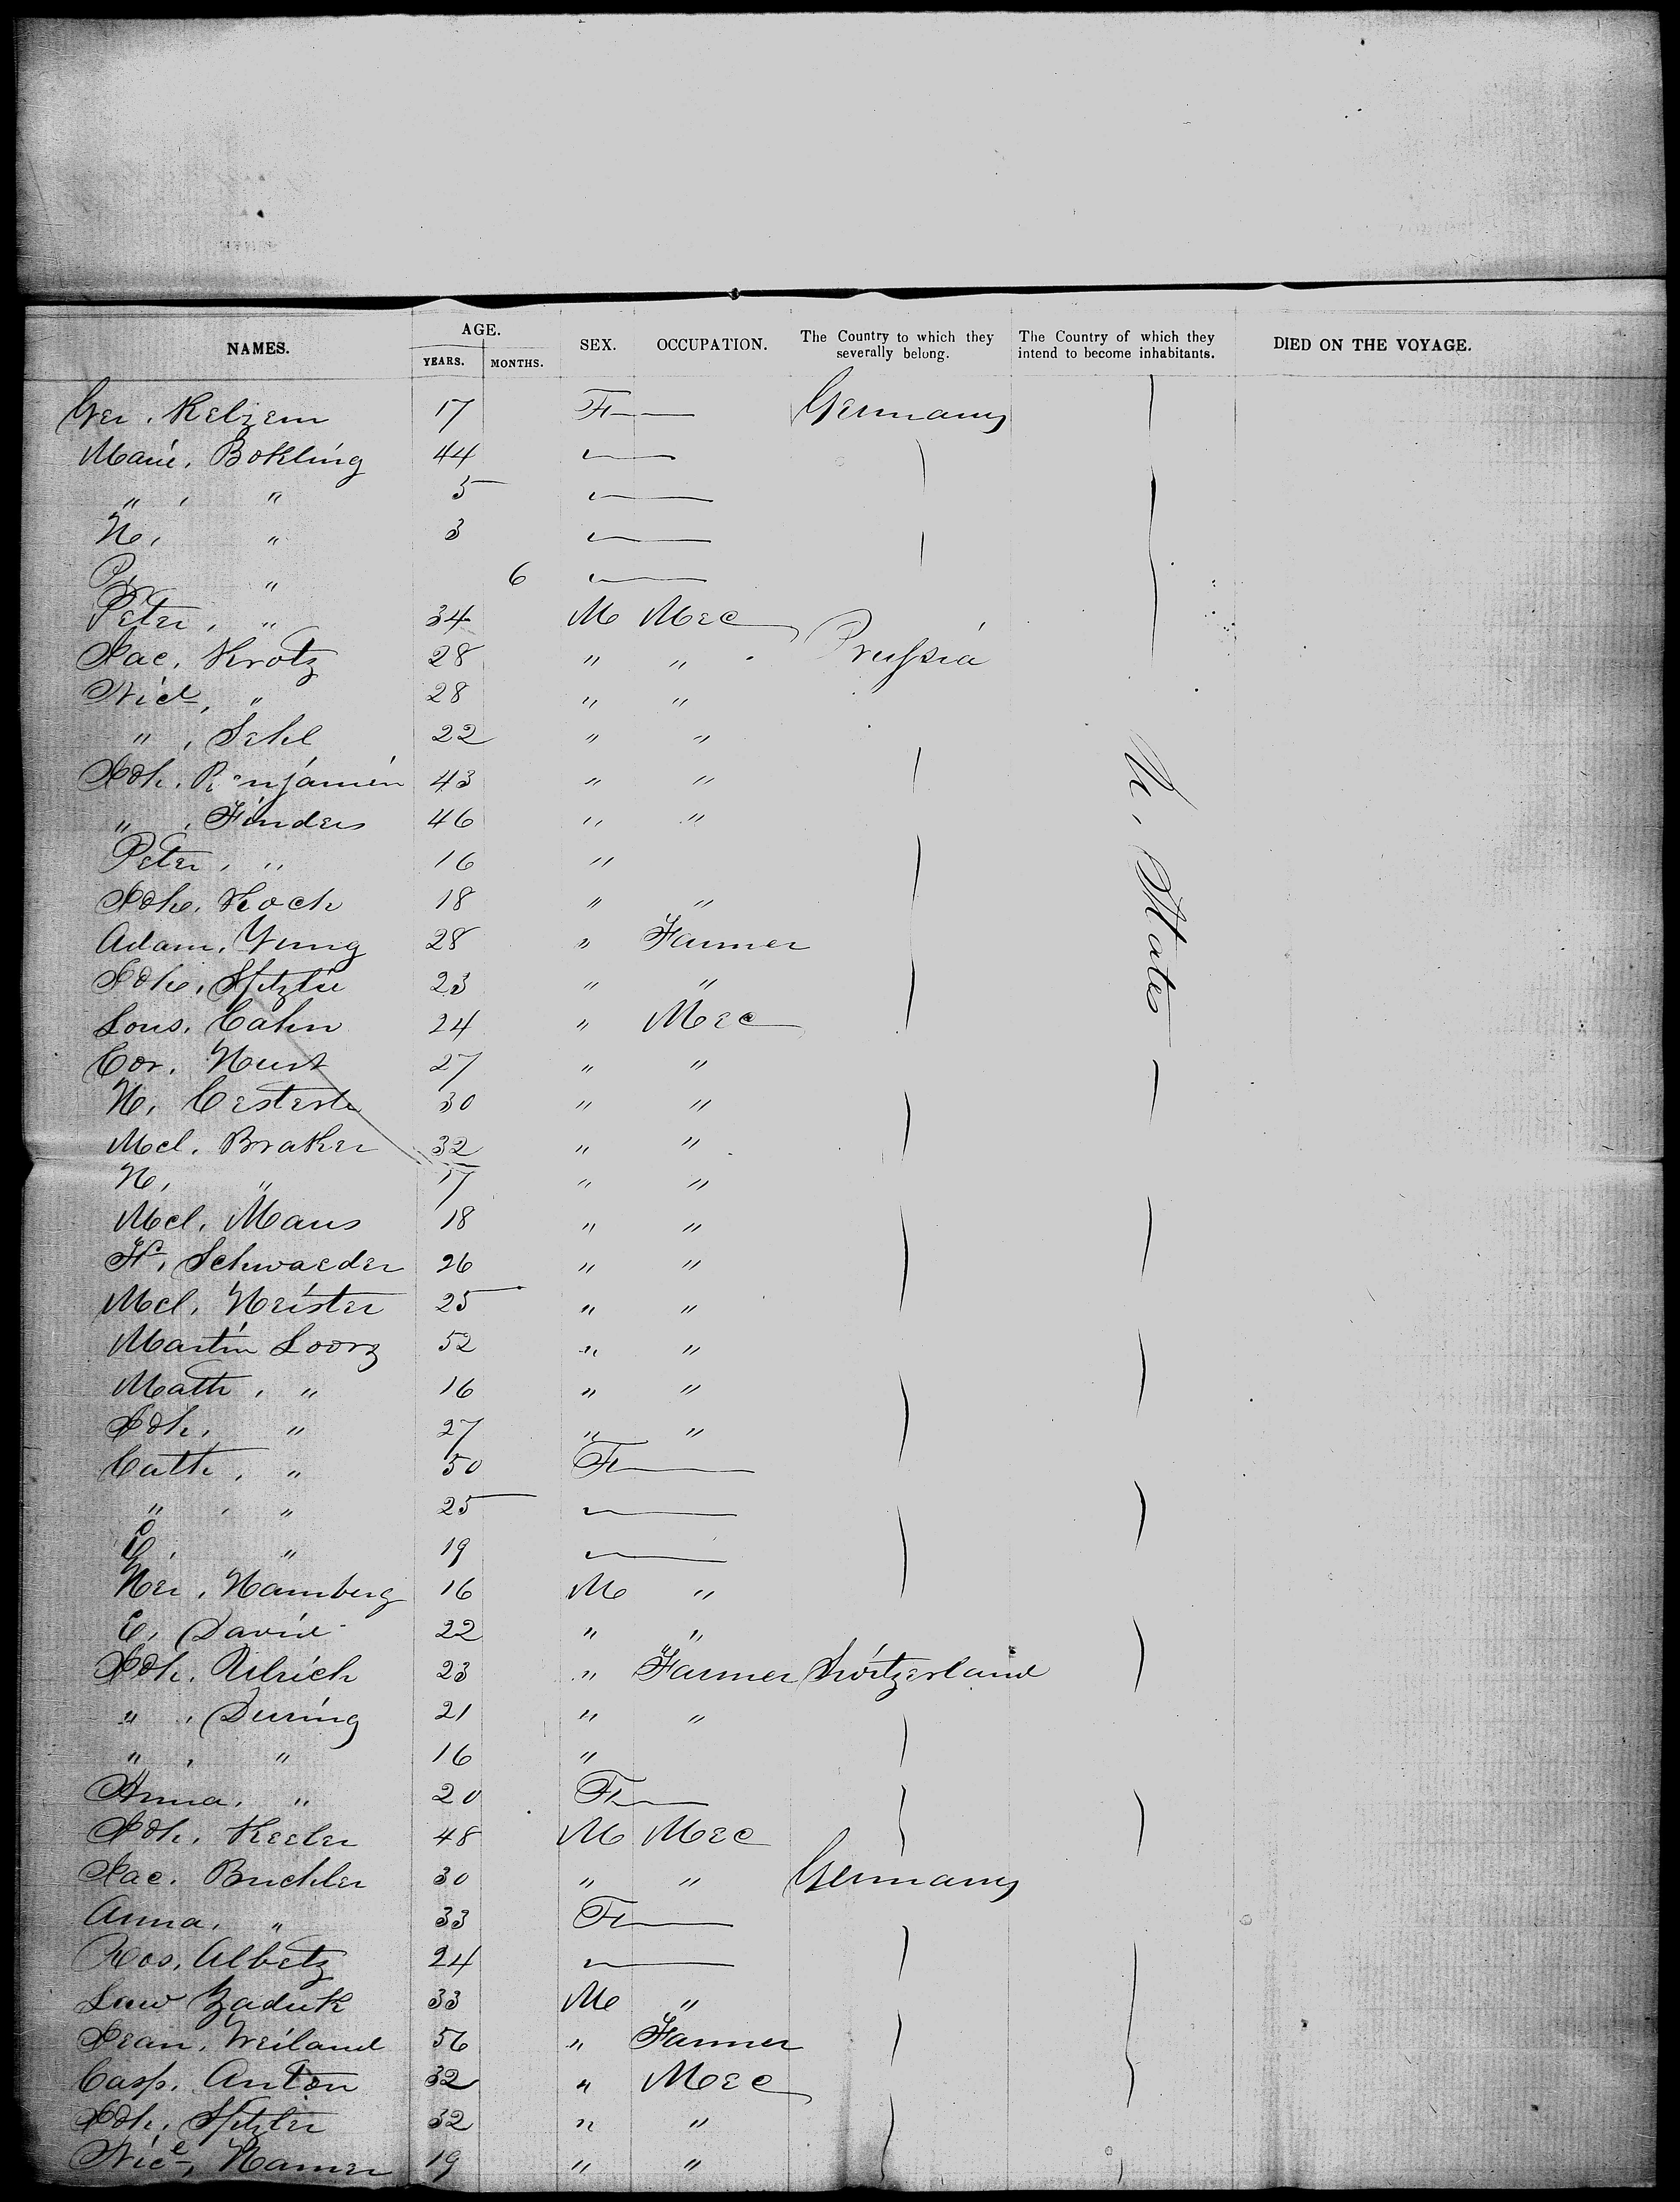 NAMES. AGE. SEX. OCCUPATION. The Country to which they severally belong. The Country of which they intend to become inhabitants. DIED ON THE VOYAGE.
YEARS. MONTHS.
Ger. Kelzem 17 F Germany
Marie, Bokling 44
" , " 5
N, " 3
" 6
Peter, " 34 M Mec
Jac. Krotz 28 " " Prussia
Nicl, " 28 " "
" , Sehl 22 " "
Joh. Benjamin 43 " "
" , Finders 46 " "
Peter, " 16 "
Joh. Koch 18 " "
Adam, Yung 28 " Farmer
Joh. 23 " "
Lous. Cahn 24 " Mec
Cor. Hust 27 " "
N, 30 " "
Mcl. Braker 32 " "
N, " 17 " "
Mcl. Maus 18 " "
Schwaeder 26 " "
Mcl. Heister 25 " "
Martin Loorz 52 " "
Math, " 16 " "
Joh, " 27 " "
Cath, " 50 F
" , " 25
" 19
Her, Hamberg 16 M "
E, David 22 " "
Joh. Ulrich 23 " Farmer Switzerland
" , During 21 " "
" , " 16 "
Anna, " 20 F
Joh. Keeler 48 M Mec
Jac. Buchler 30 " " Germany
Anna, " 33 F
Ros. Albetz 24
Law Zaduk 33 M "
Jean, Weiland 56 " Farmer
Casp. Anton 32 " Mec
Joh. 32 " "
Nicl, Hamer 19 " "
U. States